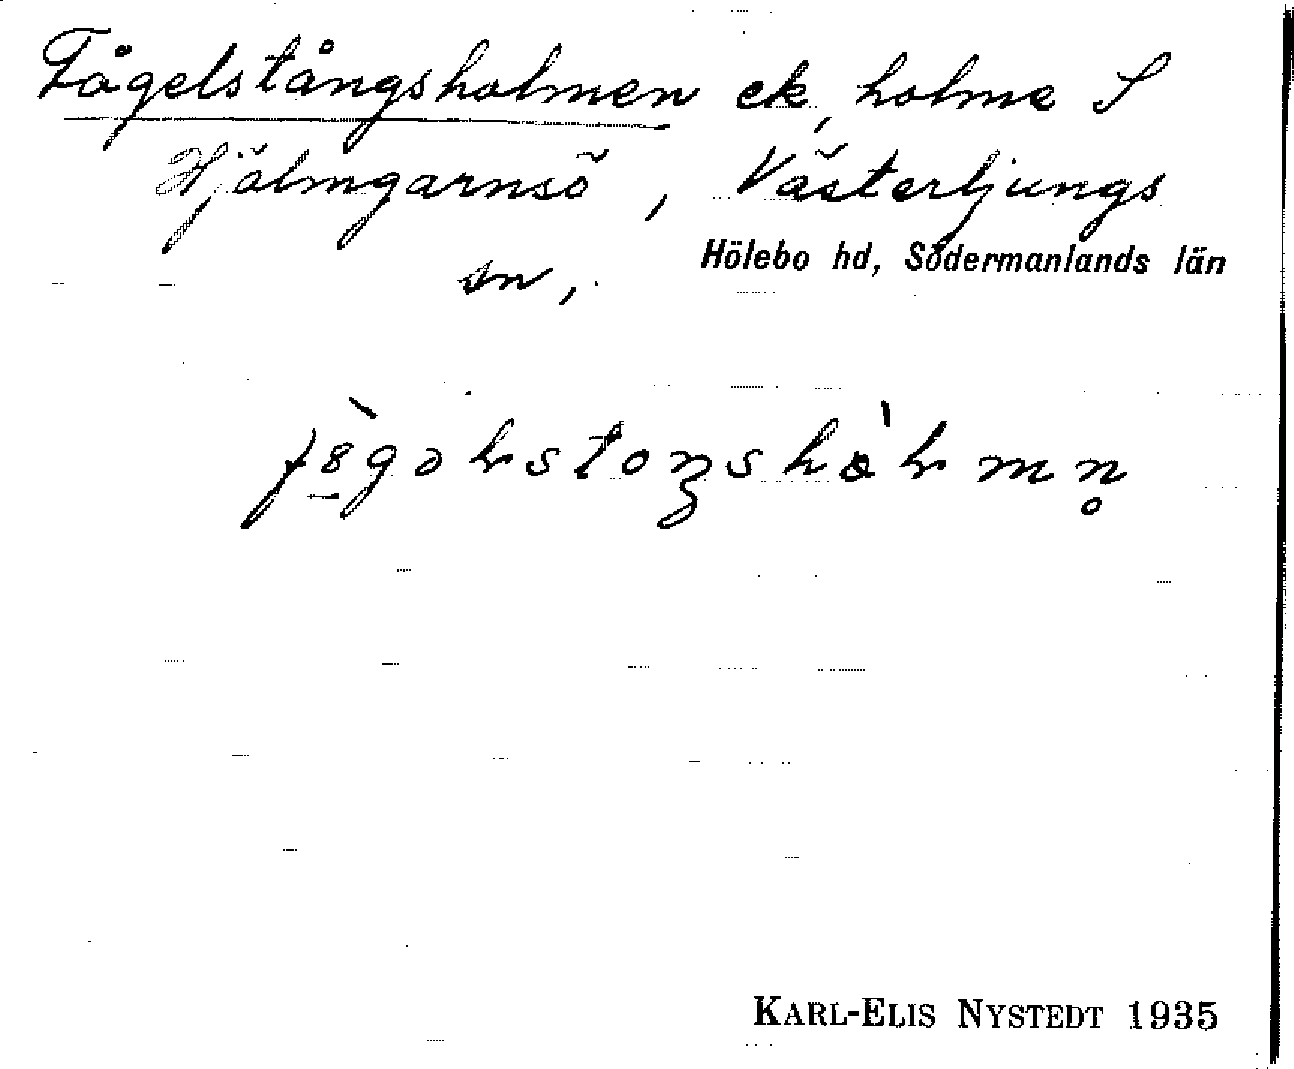 Fågelstångsholmen ek, holme S
Hjälmgarnsö, Västerljungs
Hölebo hd, Södermanlands län
sn,
KARL-ELIS NYSTEDT 1935